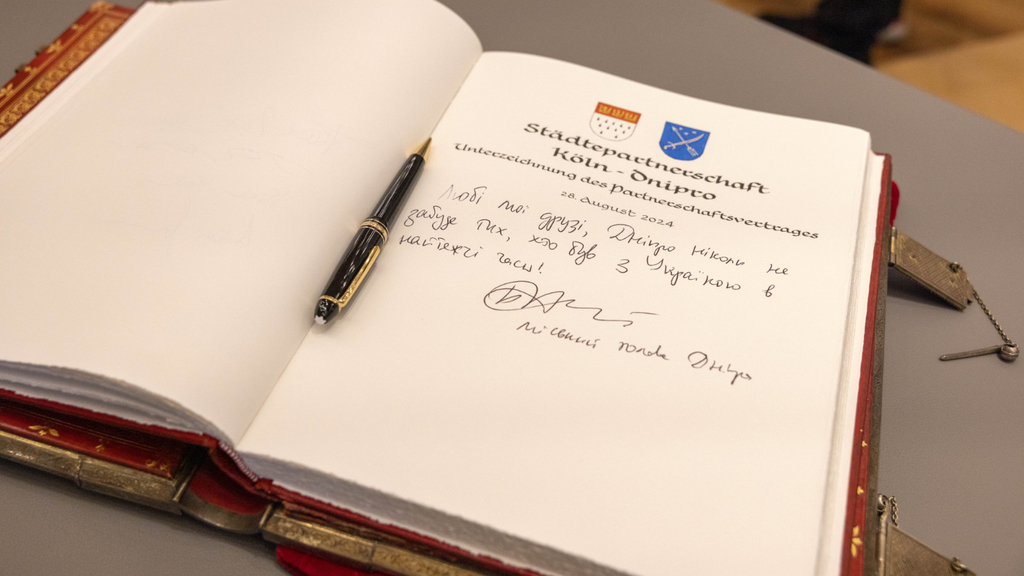 Städtepartnerschaft
Köln - Dnipro
Unterzeichnung des Partnerschaftsvertrages
28. August 2024
Любі мої друзі, Дніпро ніколи не
забуде тих, хто був з Україною в
часи!
міський голова Дніпра